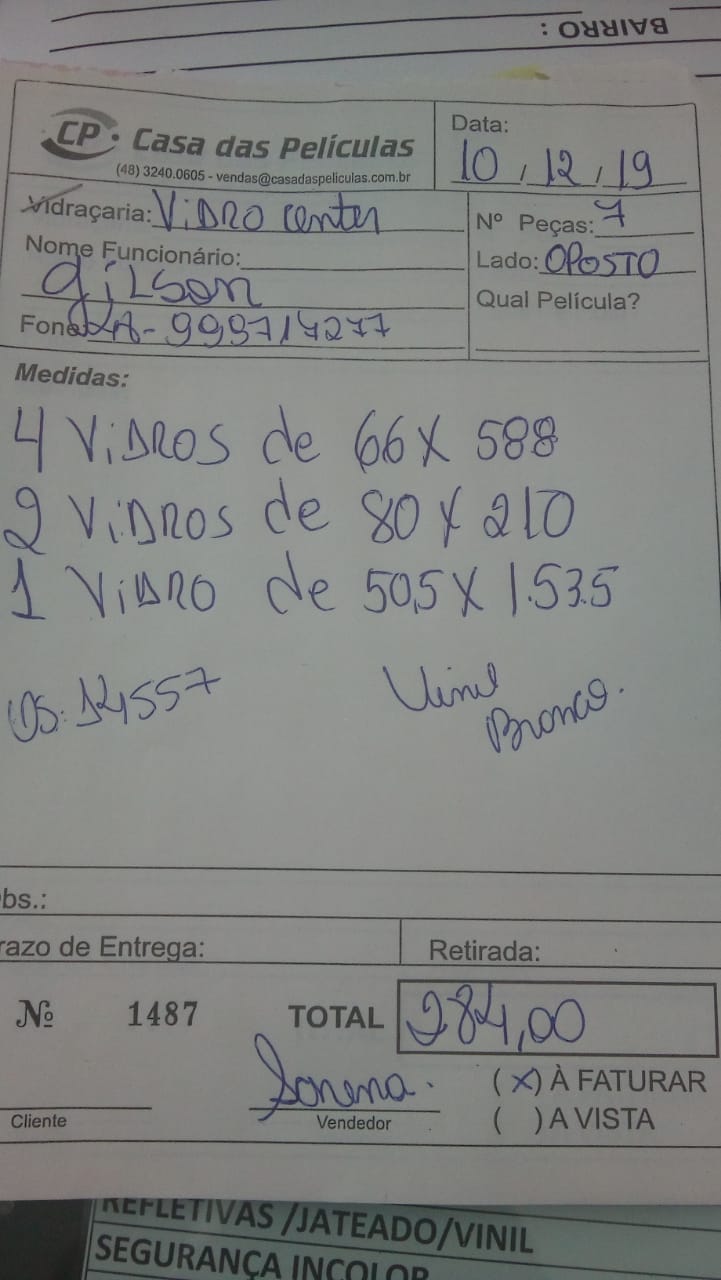 BAIRRO :
CP. Casa das Películas
(48) 3240.0605 - vendas@casadaspeliculas.com.br
Data:
10/12/19
Vidraçaria: ViDRO center
Nº Peças: 7
Nome Funcionário:
gilson
Lado: OPOSTO
Qual Película?
Fone 999714277
Medidas:
4 ViDROS de 66 X 588
2 ViDROS de 80 X 210
1 ViDRO de 50,5 X 1.53.5
OS: 14557
Vinil
Branco.
bs.:
razo de Entrega:
Retirada:
Nº 1487 TOTAL 284,00
(X) À FATURAR
Cliente
Vendedor
( ) A VISTA
REFLETIVAS /JATEADO/VINIL
SEGURANÇA INCOLOR